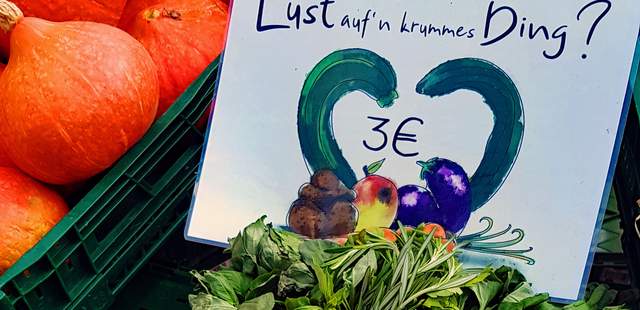 Lust auf'n krummes Ding?
3€